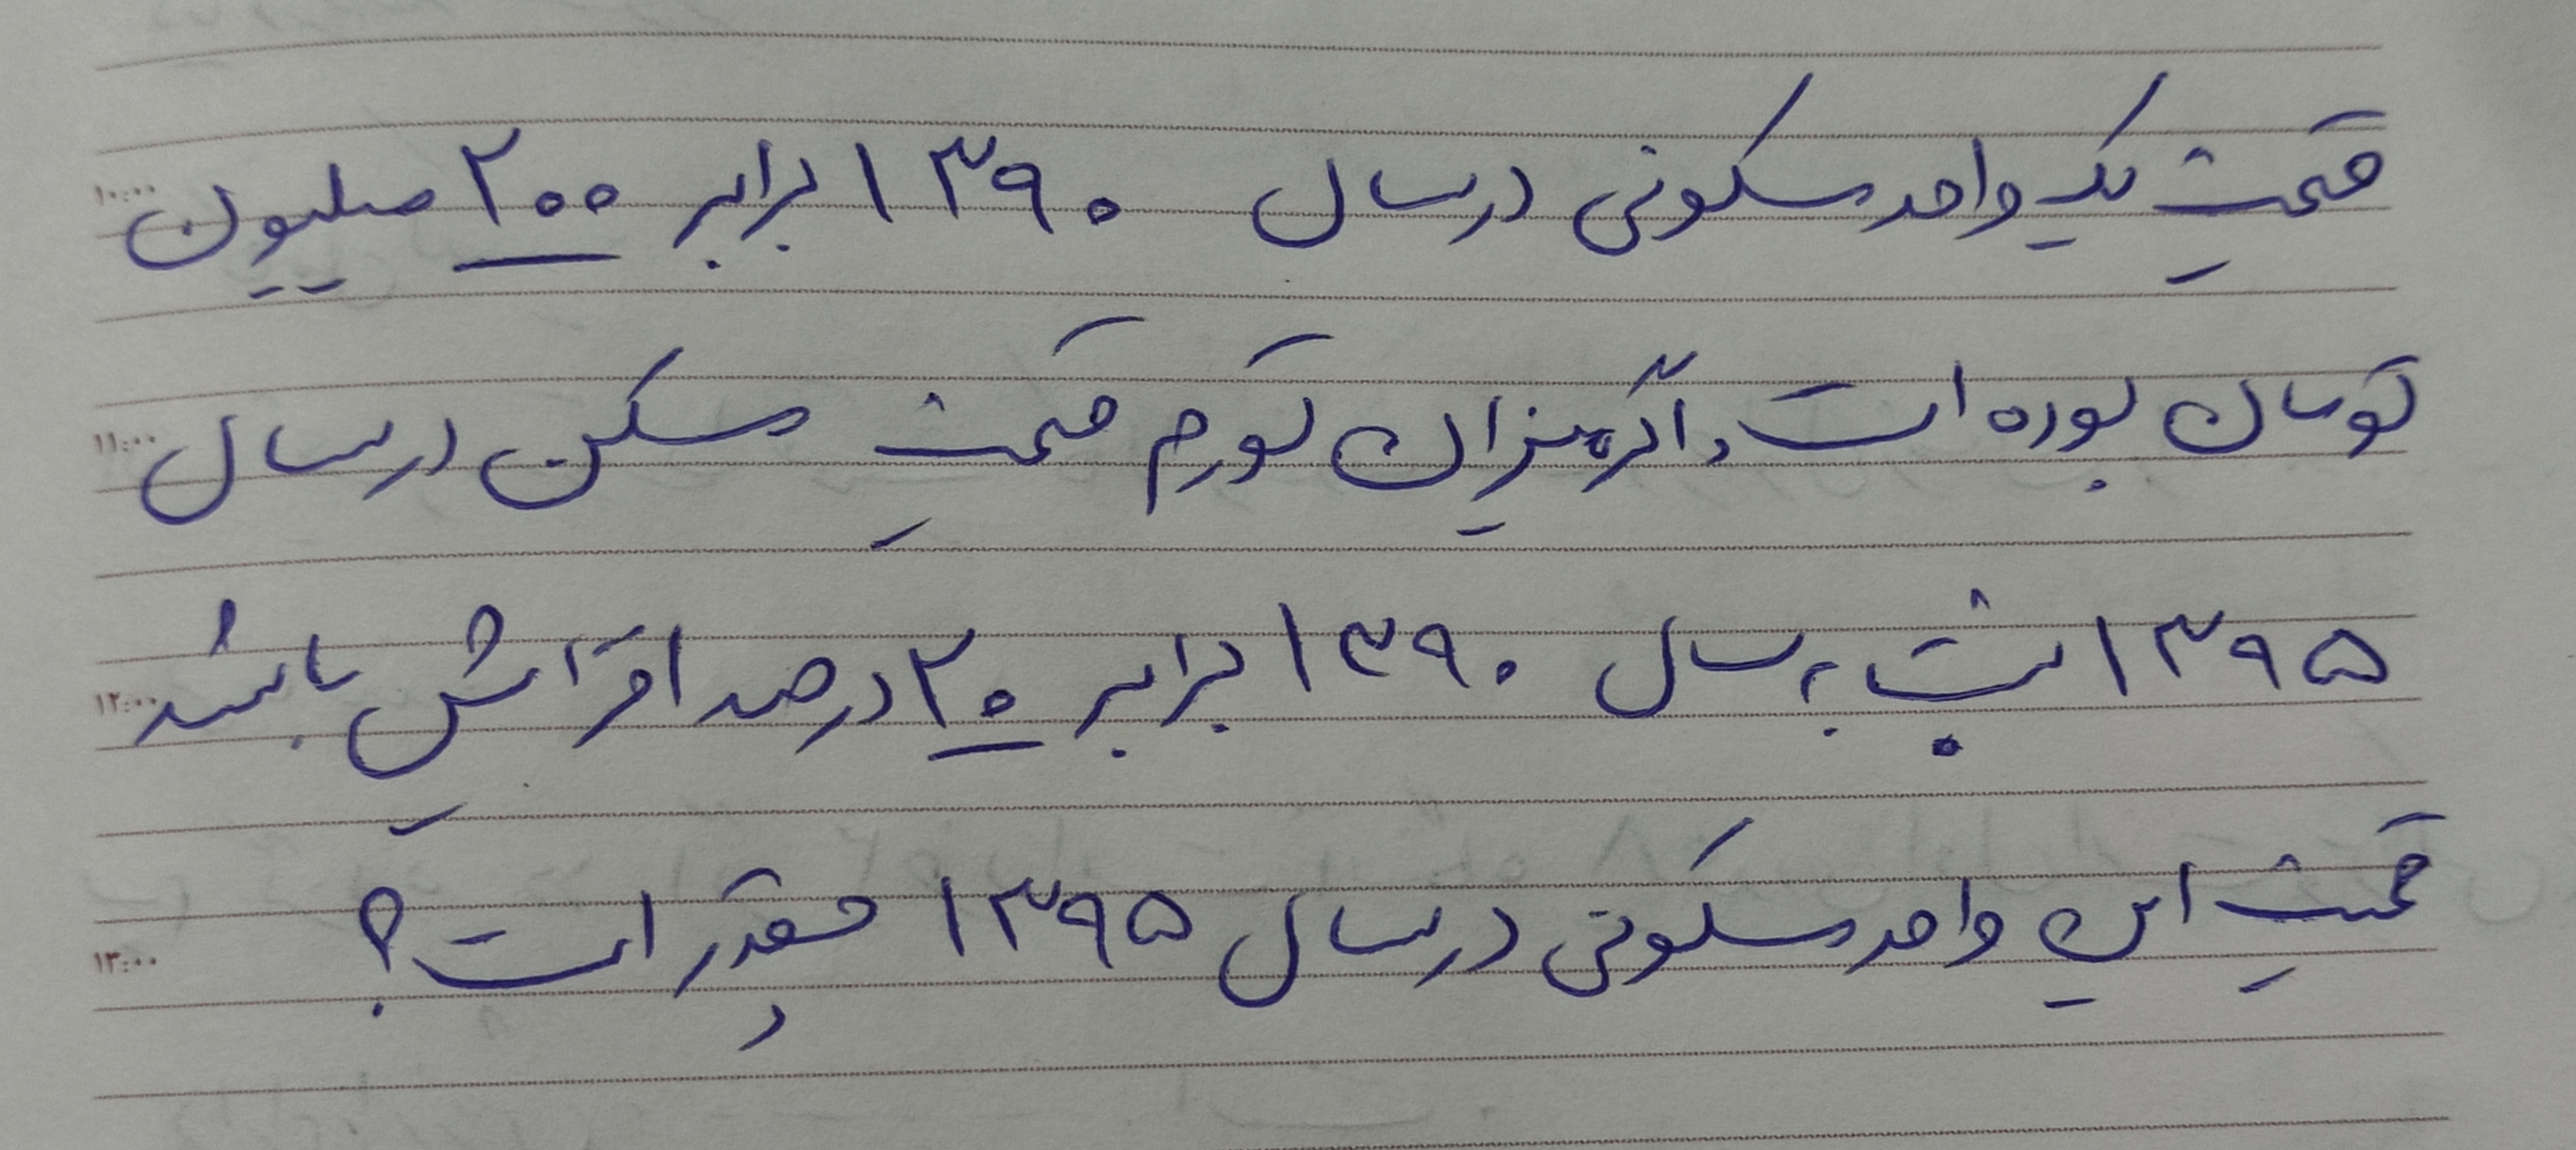 قیمتِ یک واحد مسکونی در سال ۱۳۹۰ برابر ۲۰۰ میلیون
۱۰:۰۰
تومان بوده است، اگر میزان تورم قیمتِ مسکن در سال
۱۱:۰۰
۱۳۹۵ نسبت به سال ۱۳۹۰ برابر ۲۰ درصد افزایشِ باشد
۱۲:۰۰
قیمتِ این واحد مسکونی در سال ۱۳۹۵ چقدر است؟
۱۳:۰۰